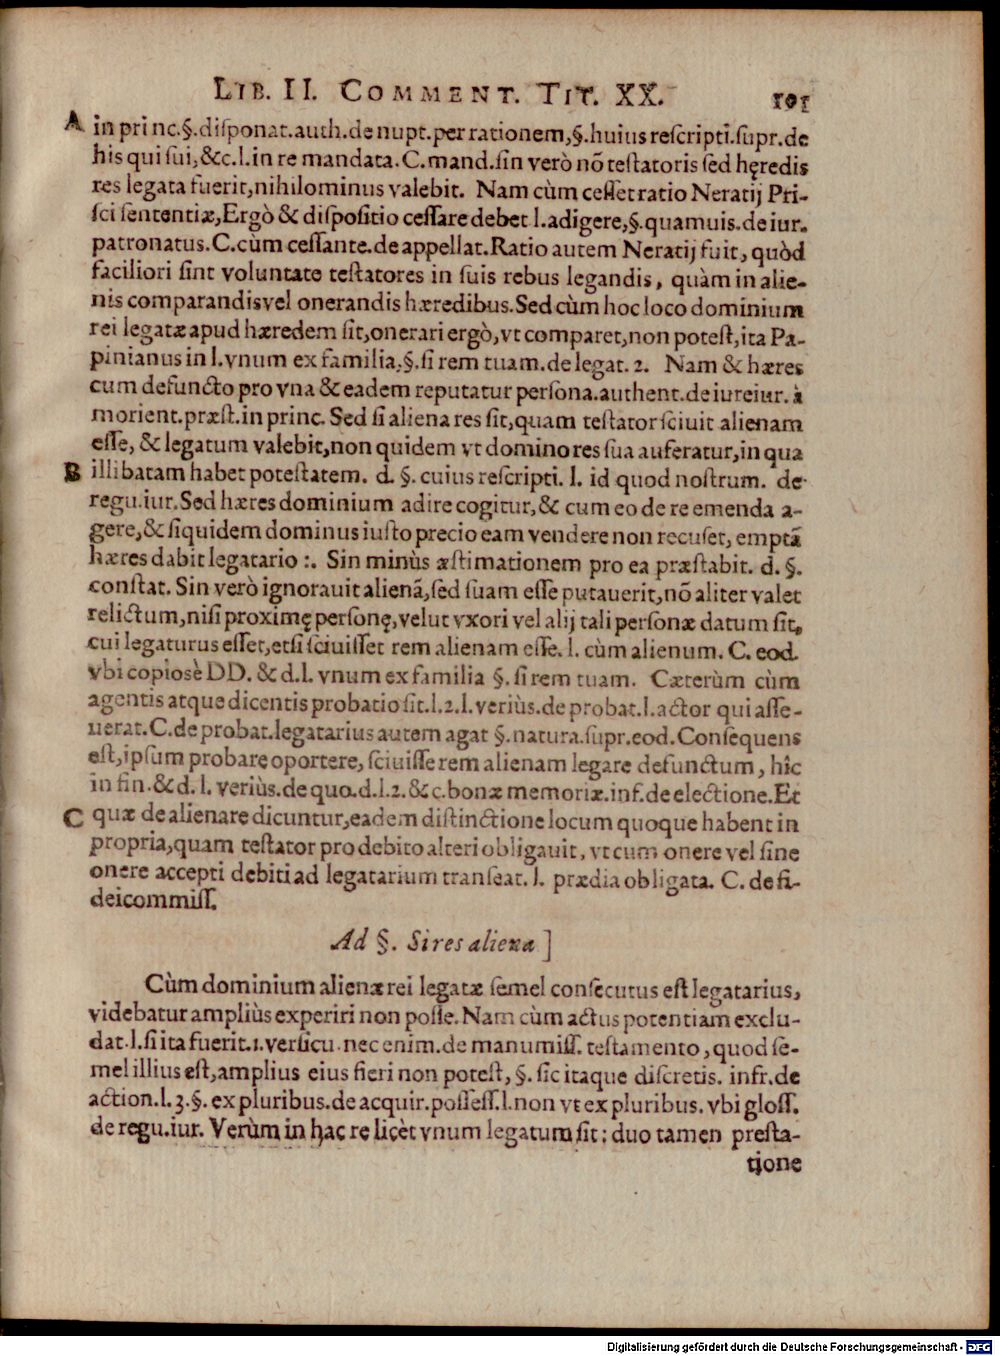 LIB. II. COMMENT. TIT. XX. 101
A in princ.§.disponat.auth.de nupt.per rationem,§.huius rescripti.supr.de
his qui sui,&c.l.in re mandata.C.mand.sin verò nō testatoris sed hęredis
res legata fuerit,nihilominus valebit. Nam cùm cesset ratio Neratij Pri-
sci sententiæ,Ergò & dispositio cessare debet l.adigere,§.quamuis.de iur.
patronatus.C.cùm cessante.de appellat.Ratio autem Neratij fuit, quòd
faciliori sint voluntate testatores in suis rebus legandis, quàm in alie-
nis comparandis vel onerandis hæredibus.Sed cùm hoc loco dominium
rei legatæ apud hæredem sit,onerari ergò,vt comparet,non potest,ita Pa-
pinianus in l.vnum ex familia,§.si rem tuam.de legat. 2. Nam & hæres
cum defuncto pro vna & eadem reputatur persona.authent.de iureiur. à
morient.præst.in princ. Sed si aliena res sit,quam testator sciuit alienam
esse, & legatum valebit,non quidem vt domino res sua auferatur,in qua
B illibatam habet potestatem. d. §. cuius rescripti. l. id quod nostrum. de
regu.iur.Sed hæres dominium adire cogitur,& cum eo de re emenda a-
gere,& siquidem dominus iusto precio eam vendere non recuset, emptā
hæres dabit legatario :. Sin minùs æstimationem pro ea præstabit. d. §.
constat. Sin verò ignorauit alienā,sed suam esse putauerit,nō aliter valet
relictum,nisi proximę personę,velut vxori vel alij tali personæ datum sit,
cui legaturus esset,etsi sciuisset rem alienam esse. l. cùm alienum. C. eod.
vbi copiosè DD. & d.l. vnum ex familia §. si rem tuam. Cæterùm cùm
agentis atque dicentis probatio sit.l.2.l.veriùs.de probat.l.actor qui asse-
uerat.C.de probat.legatarius autem agat §.natura.supr.eod.Consequens
est,ipsum probare oportere, sciuisse rem alienam legare defunctum, hîc
in fin.& d. l. veriùs.de quo.d.l.2.& c.bonæ memoriæ.inf.de electione.Et
C quæ de alienare dicuntur,eadem distinctione locum quoque habent in
propria,quam testator pro debito alteri obligauit, vt cum onere vel sine
onere accepti debiti ad legatarium transeat. l. prædia obligata. C. de fi-
deicommiss.
Ad §. Si res aliena ]
Cùm dominium alienæ rei legatæ semel consecutus est legatarius,
videbatur ampliùs experiri non posse. Nam cùm actus potentiam exclu-
dat.l.si ita fuerit.1.versicu.nec enim.de manumiss. testamento, quod se-
mel illius est,amplius eius fieri non potest, §. sic itaque discretis. infr.de
action.l.3.§. ex pluribus.de acquir.possess.l.non vt ex pluribus. vbi gloss.
de regu.iur. Verùm in hac re licèt vnum legatum sit; duo tamen presta-
tione
Digitalisierung gefördert durch die Deutsche Forschungsgemeinschaft - DFG